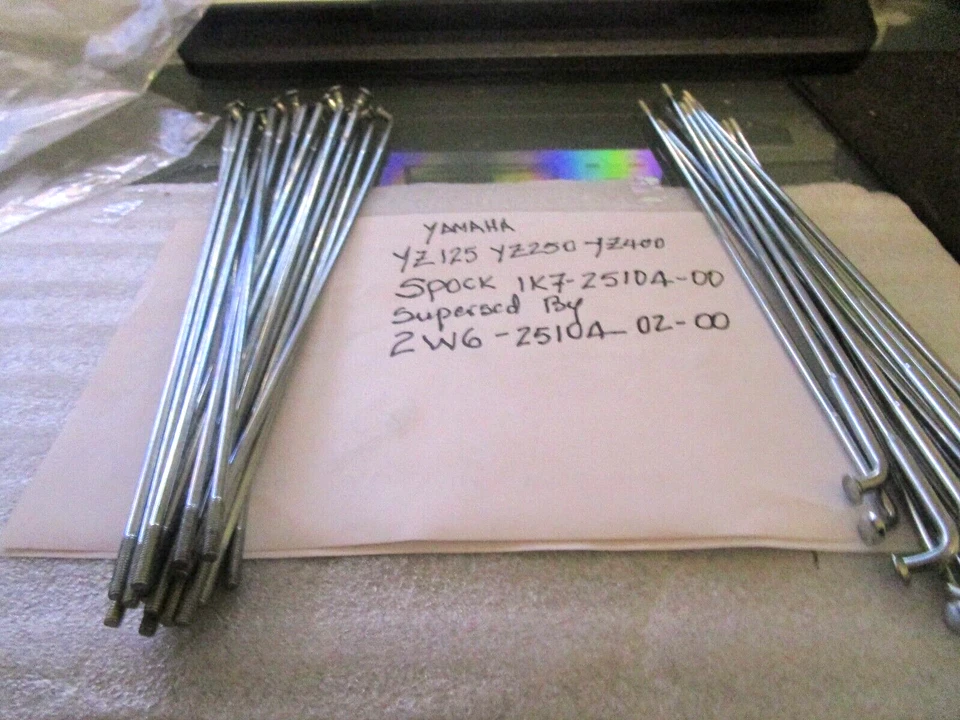 YAMAHA
YZ125 YZ250 YZ400
Spock 1K7-2510A-00
Supersed By
2W6-2510A-02-00